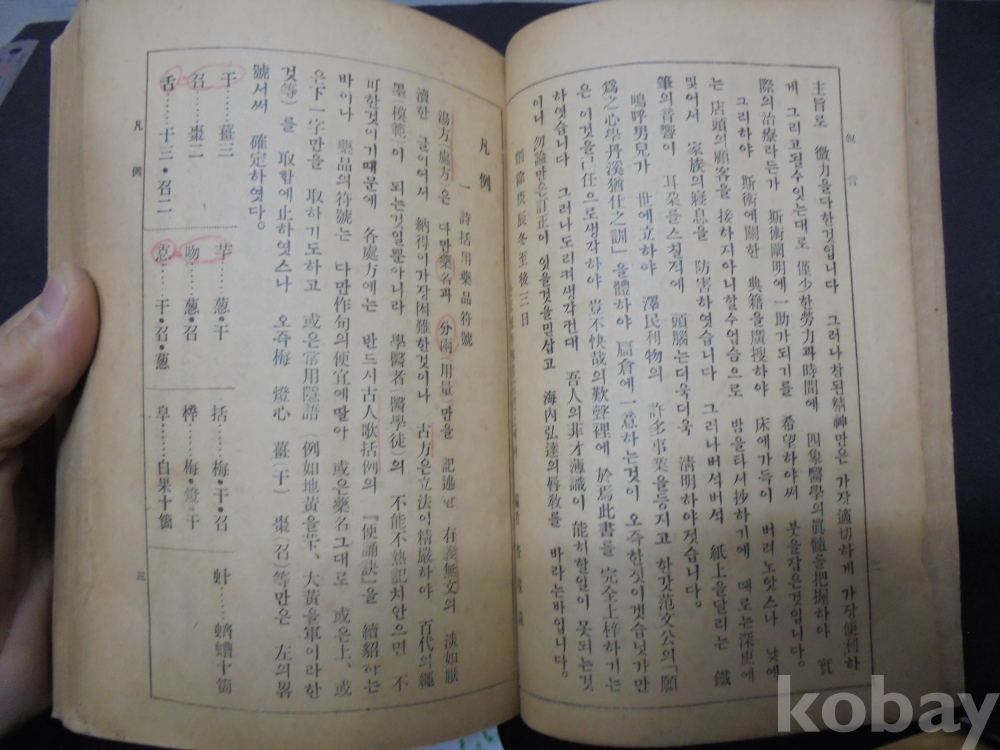 叙言
主旨로 微力을다한것입니다 그러나참된精神만은 가장適切하게 가장便利하
게 그리고될수잇는대로 僅少한勞力과時間에 四象醫學의眞髓를把握하야 實
際의治療라든가 斯術闡明에一助가되기를 希望하야써 붓을잡은것입니다。
그리하야 斯術에關한 典籍을廣搜하야 床에가득이 버려노앗스나 낮에
는 店頭의顧客을 接하지아니할수업슴으로 밤을타서抄하기에 때로는深更에
및어서 家族의寢息을 防害하엿습니다 그러나버석버석 紙上을달리는 鐵
筆의音響이 耳朶를스칠적에 頭腦는더욱더욱 淸明하야젓습니다。
嗚呼男兒가 世에立하야 澤民利物의 許多事業을등지고 한갓范文公의「願
爲之心學丹溪猶仕之訓」을體하야 扁倉에一意하는것이 오즉한짓이겟습닛가만
은 이것을己任으로생각하야 豈不快哉의歎聲裡에 於焉此書를 完全上梓하기는
하엿습니다 그러나도리켜생각컨대 吾人의非才薄識이 能히할일이 못되는것
이니 勿論만은訂正이 잇을것을믿삽고 海內弘達의唇敎를 바라는바입니다。
庚辰冬至後三日
二
凡例
一 詩括用藥品符號
湯方(處方)은 다만藥名과 分兩(用量)만을 記述한 有義無文의 淡如厭
瀆한 글이어서 納得이가장困難한것이나 古方은立法이精嚴하야 百代의繩
墨(模範)이 되는것일뿐아니라 學醫者(醫學徒)의 不能不熟記처안으면 不
可한것이기때문에 各處方에는 반드시古人歌括例의 『使誦訣』을 續貂하는
바이나 藥品의符號는 다만作句의便宜에딸아 或은藥名그대로 或은上、或
은下一字만을 取하기도하고 或은常用隱語(例如地黃을芐、大黃을軍이라한
것等)를 取함에止하엿스나 오즉梅 燈心 薑(干) 棗(召)等만은 左의畧
號서써 確定하엿다。
干……薑三
召……棗二
舌……十三•召二
芉……葱•干
吻……葱•召
……干•召•葱
括……梅•干•召
榫……梅•燈•干
皁……白果十箇
蚙……蠐螬十箇
凡例